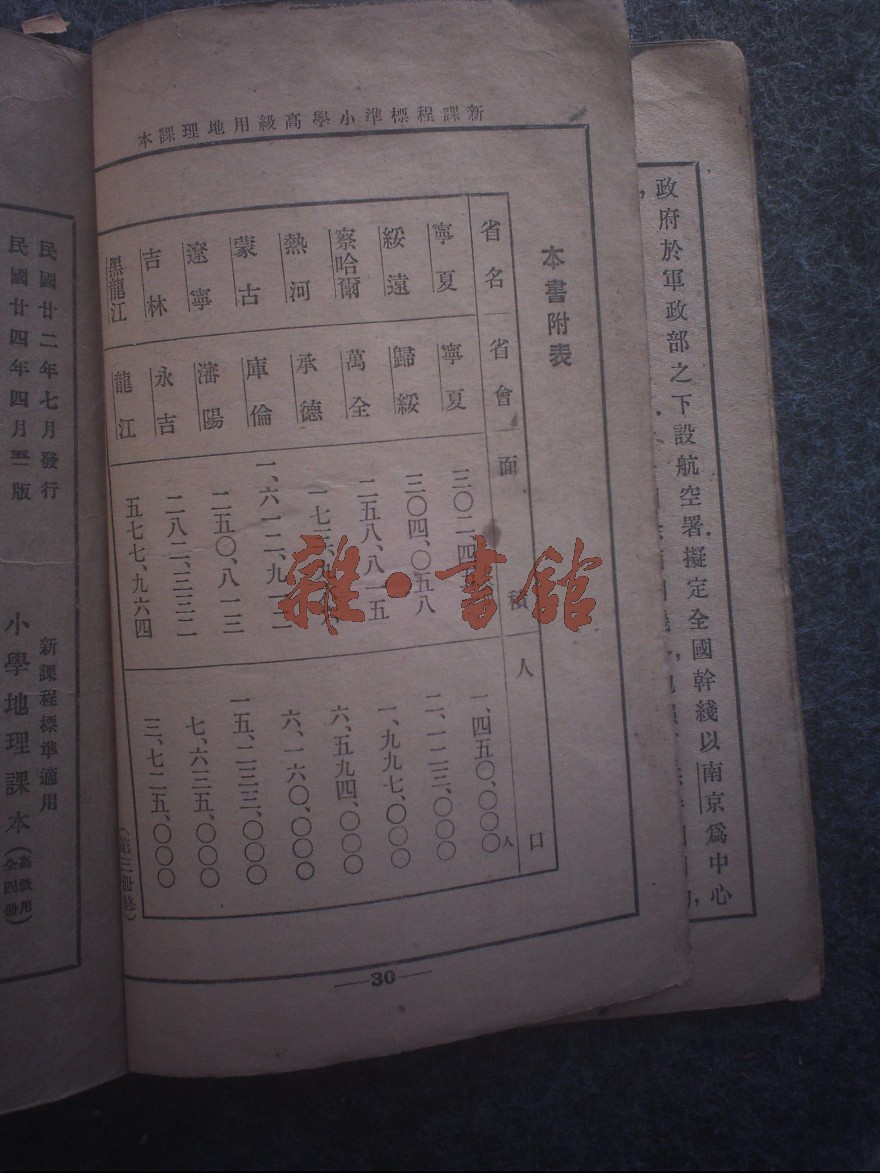 政府於軍政部之下設航空署、擬定全國幹綫以南京爲中心
新課程標準小學高級用地理課本
本書附表
省名 省會 面積 人口
寧夏 寧夏 三〇二、四 一、四五〇、〇〇〇人
綏遠 歸綏 三〇四、〇五八 二、一二三、〇〇〇
察哈爾 萬全 二五八、八一五 一、九九七、〇〇〇
熱河 承德 一七三、 六、五九四、〇〇〇
蒙古 庫倫 一、六一二、九一二 六、一六〇、〇〇〇
遼寧 瀋陽 二五〇、八一三 一五、二三三、〇〇〇
吉林 永吉 二八二、三三二 七、六三五、〇〇〇
黑龍江 龍江 五七七、九六四 三、七二五、〇〇〇
(第三册終)
30
雜·書館
民國廿二年七月發行
民國廿四年四月 版
新課程標準適用
小學地理課本(高級用全四册)